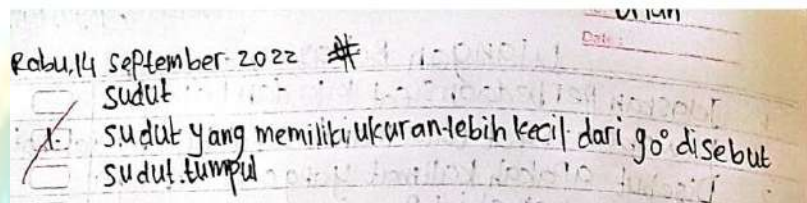 urian
Date:
Rabu, 14 September 2022 #
sudut
1. sudut yang memiliki ukuran lebih kecil dari 90° disebut
sudut tumpul